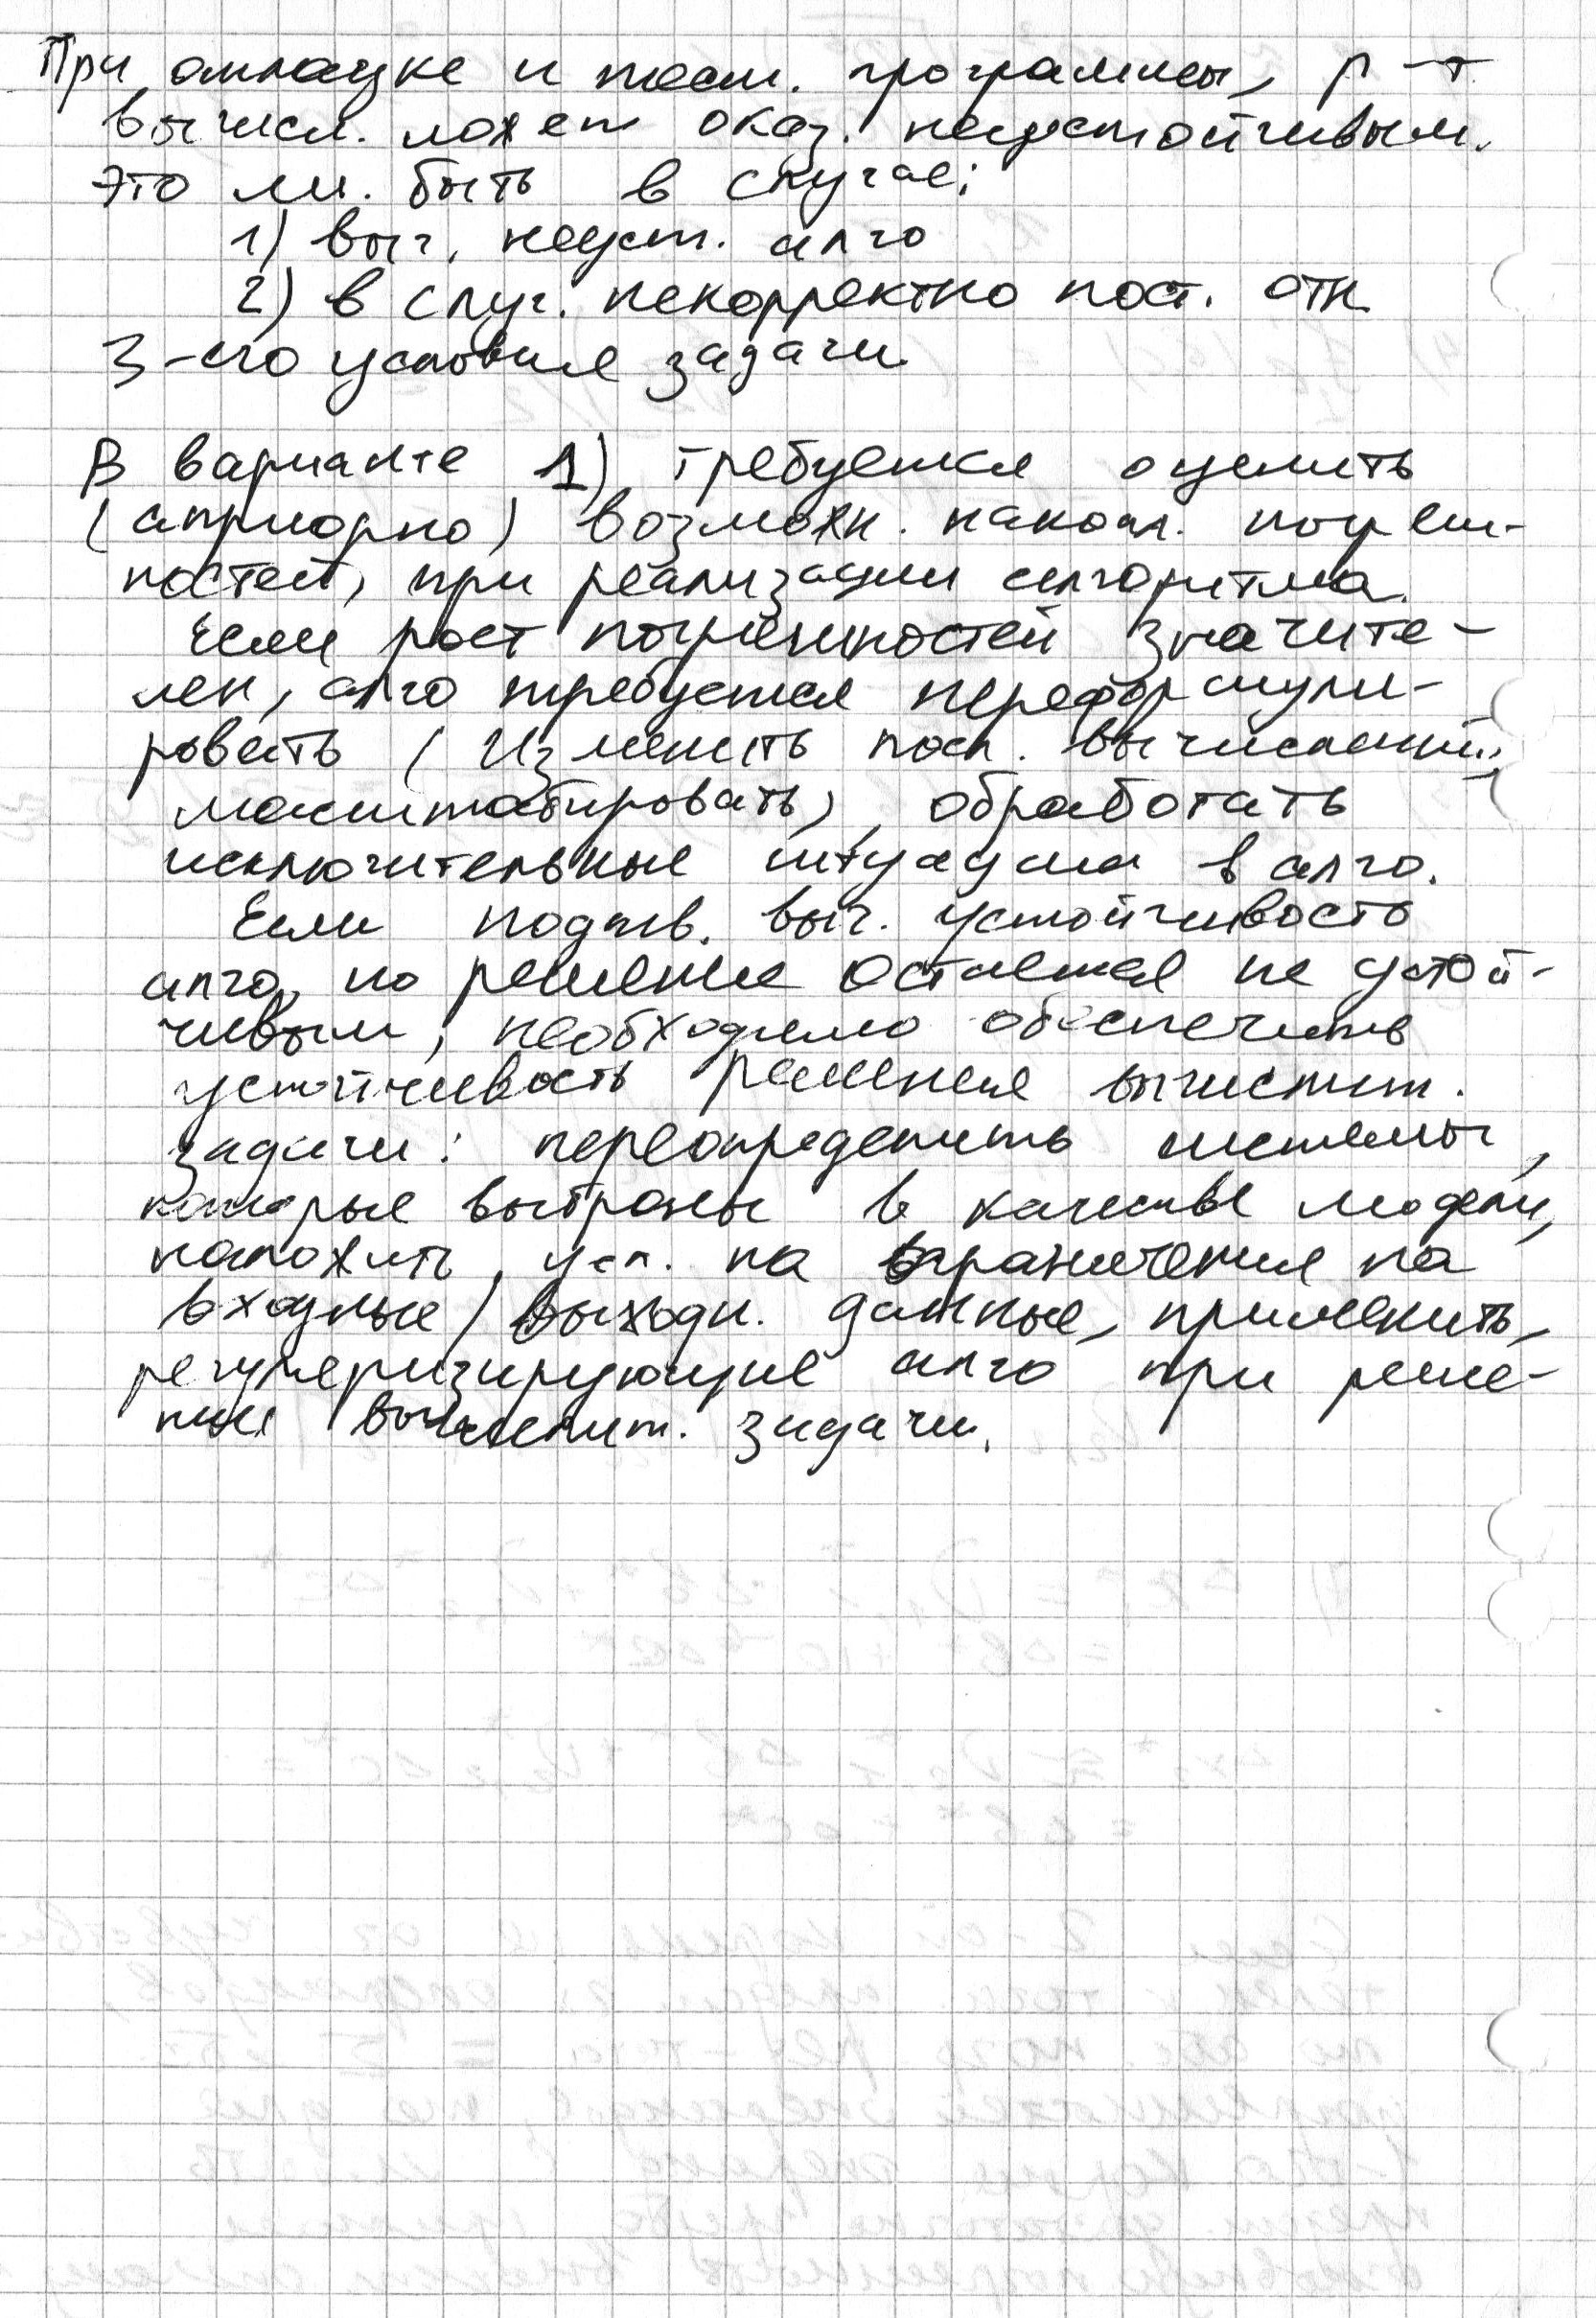 При отладке и тест. программы, р-т
вычисл. может оказ. неустойчивым.
это м. быть в случае:
1) выч. неуст. алго
2) в случ. некорректно пост. отн.
3-его условия задачи
В варианте 1) требуется оценить
(априорно) возможн. накопл. погреш-
ностей, при реализации алгоритма.
Если рост погрешностей значите-
лен, алго требуется переформули-
ровать (изменить посл. вычислений,
масштабировать), обработать
исключительные ситуации в алго.
Если подтв. выч. устойчивость
алго, но решение остается не устой-
чивым, необходимо обеспечить
устойчивость решения вычислит.
задачи: переопределить системы,
которые выбраны в качестве модели,
наложить усл. на ограничения на
входные / выходн. данные, применить
регуляризирующие алго при реше-
нии вычислит. задачи.